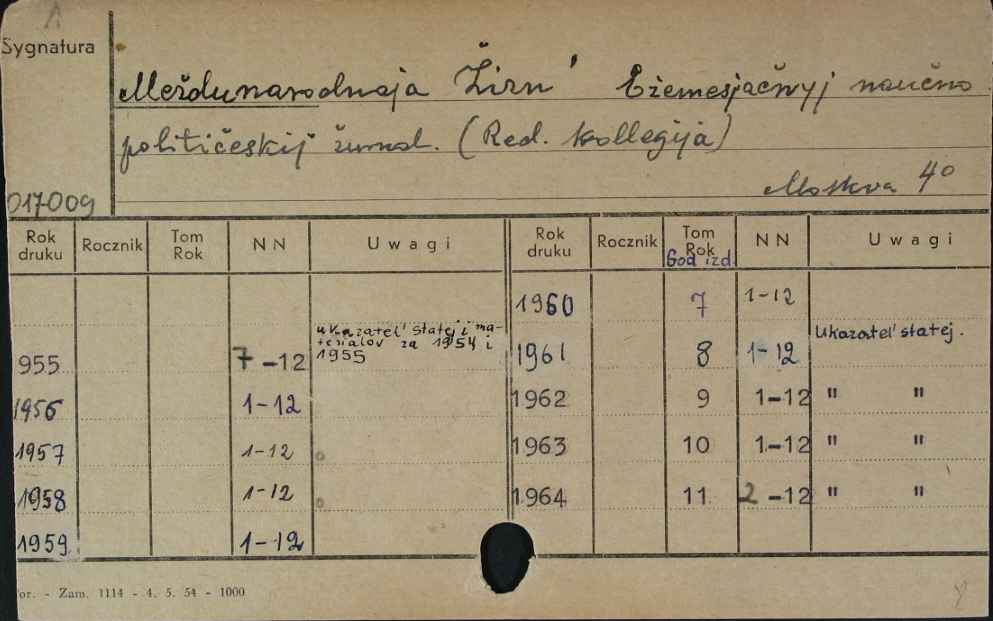 Sygnatura
Meždunarodnaja Žizn' Ežemesjačnyj naučno
političeskij žurnal. (Red. kollegija)
Moskva 4°
017009
Rok druku Rocznik Tom Rok NN Uwagi
955 7-12 ukazatel' statej i ma-
terialov za 1954 i
1955
1956 1-12
1957 1-12
1958 1-12
1959 1-12
Rok druku Rocznik Tom Rok God izd NN Uwagi
1960 7 1-12
1961 8 1-12 Ukazatel' statej.
1962 9 1-12 " "
1963 10 1-12 " "
1964 11 2-12 " "
or. - Zam. 1114 - 4. 5. 54 - 1000